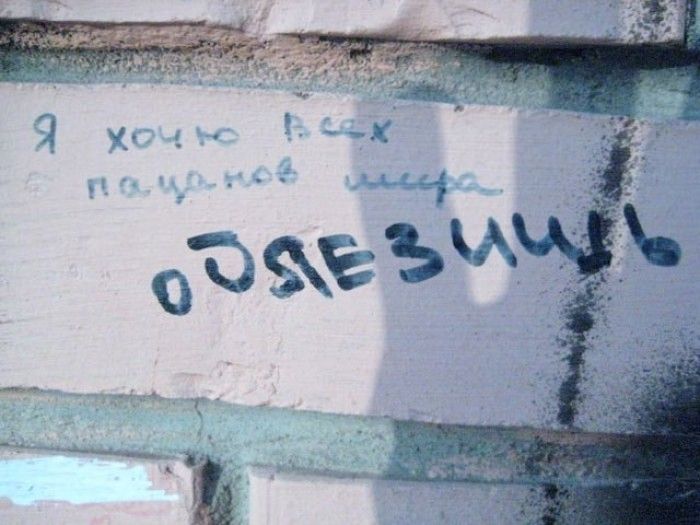 Я хочю всех
пацанов мира
оБЛЕЗИШЬ